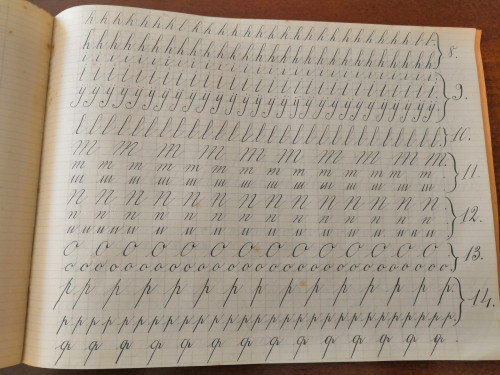 h h h h h h h h l h h h h h h h h h h h h h h h h h h h h h t t.
h h h h h h h h h h h h h h h h h h h h h h h h h h h h h h } 8.
i i i i i i i i i i i i i i i i i i i i i i i i i i i i
i i i i i i i i i i i i i i i i i i i i i i i i i i i i } 9.
y y y y y y y y y y y y y y y y y y y y y y y y y y y y
l l l l l l l l l l l l l l l l l l l l l l l l l l l l } 10.
M M M M M M M M M M.
m m m m m m m m m m m m m m } 11.
ш ш ш ш ш ш ш ш ш ш ш ш ш ш
N N N N N N N N N N N N N N
n n n n n n n n n n n n n n } 12.
и и и и и и и и и и и и и и и и и и
O O O O O O O O O O O O O O } 13.
o o o o o o o o o o o o o o o o o o o o o o o o o o o o.
p p p p p p p p p p p p p p p } 14.
p p p p p p p p p p p p p p p p p p p p p p p p p p p.
ф ф ф ф ф ф ф ф ф ф ф ф ф ф.